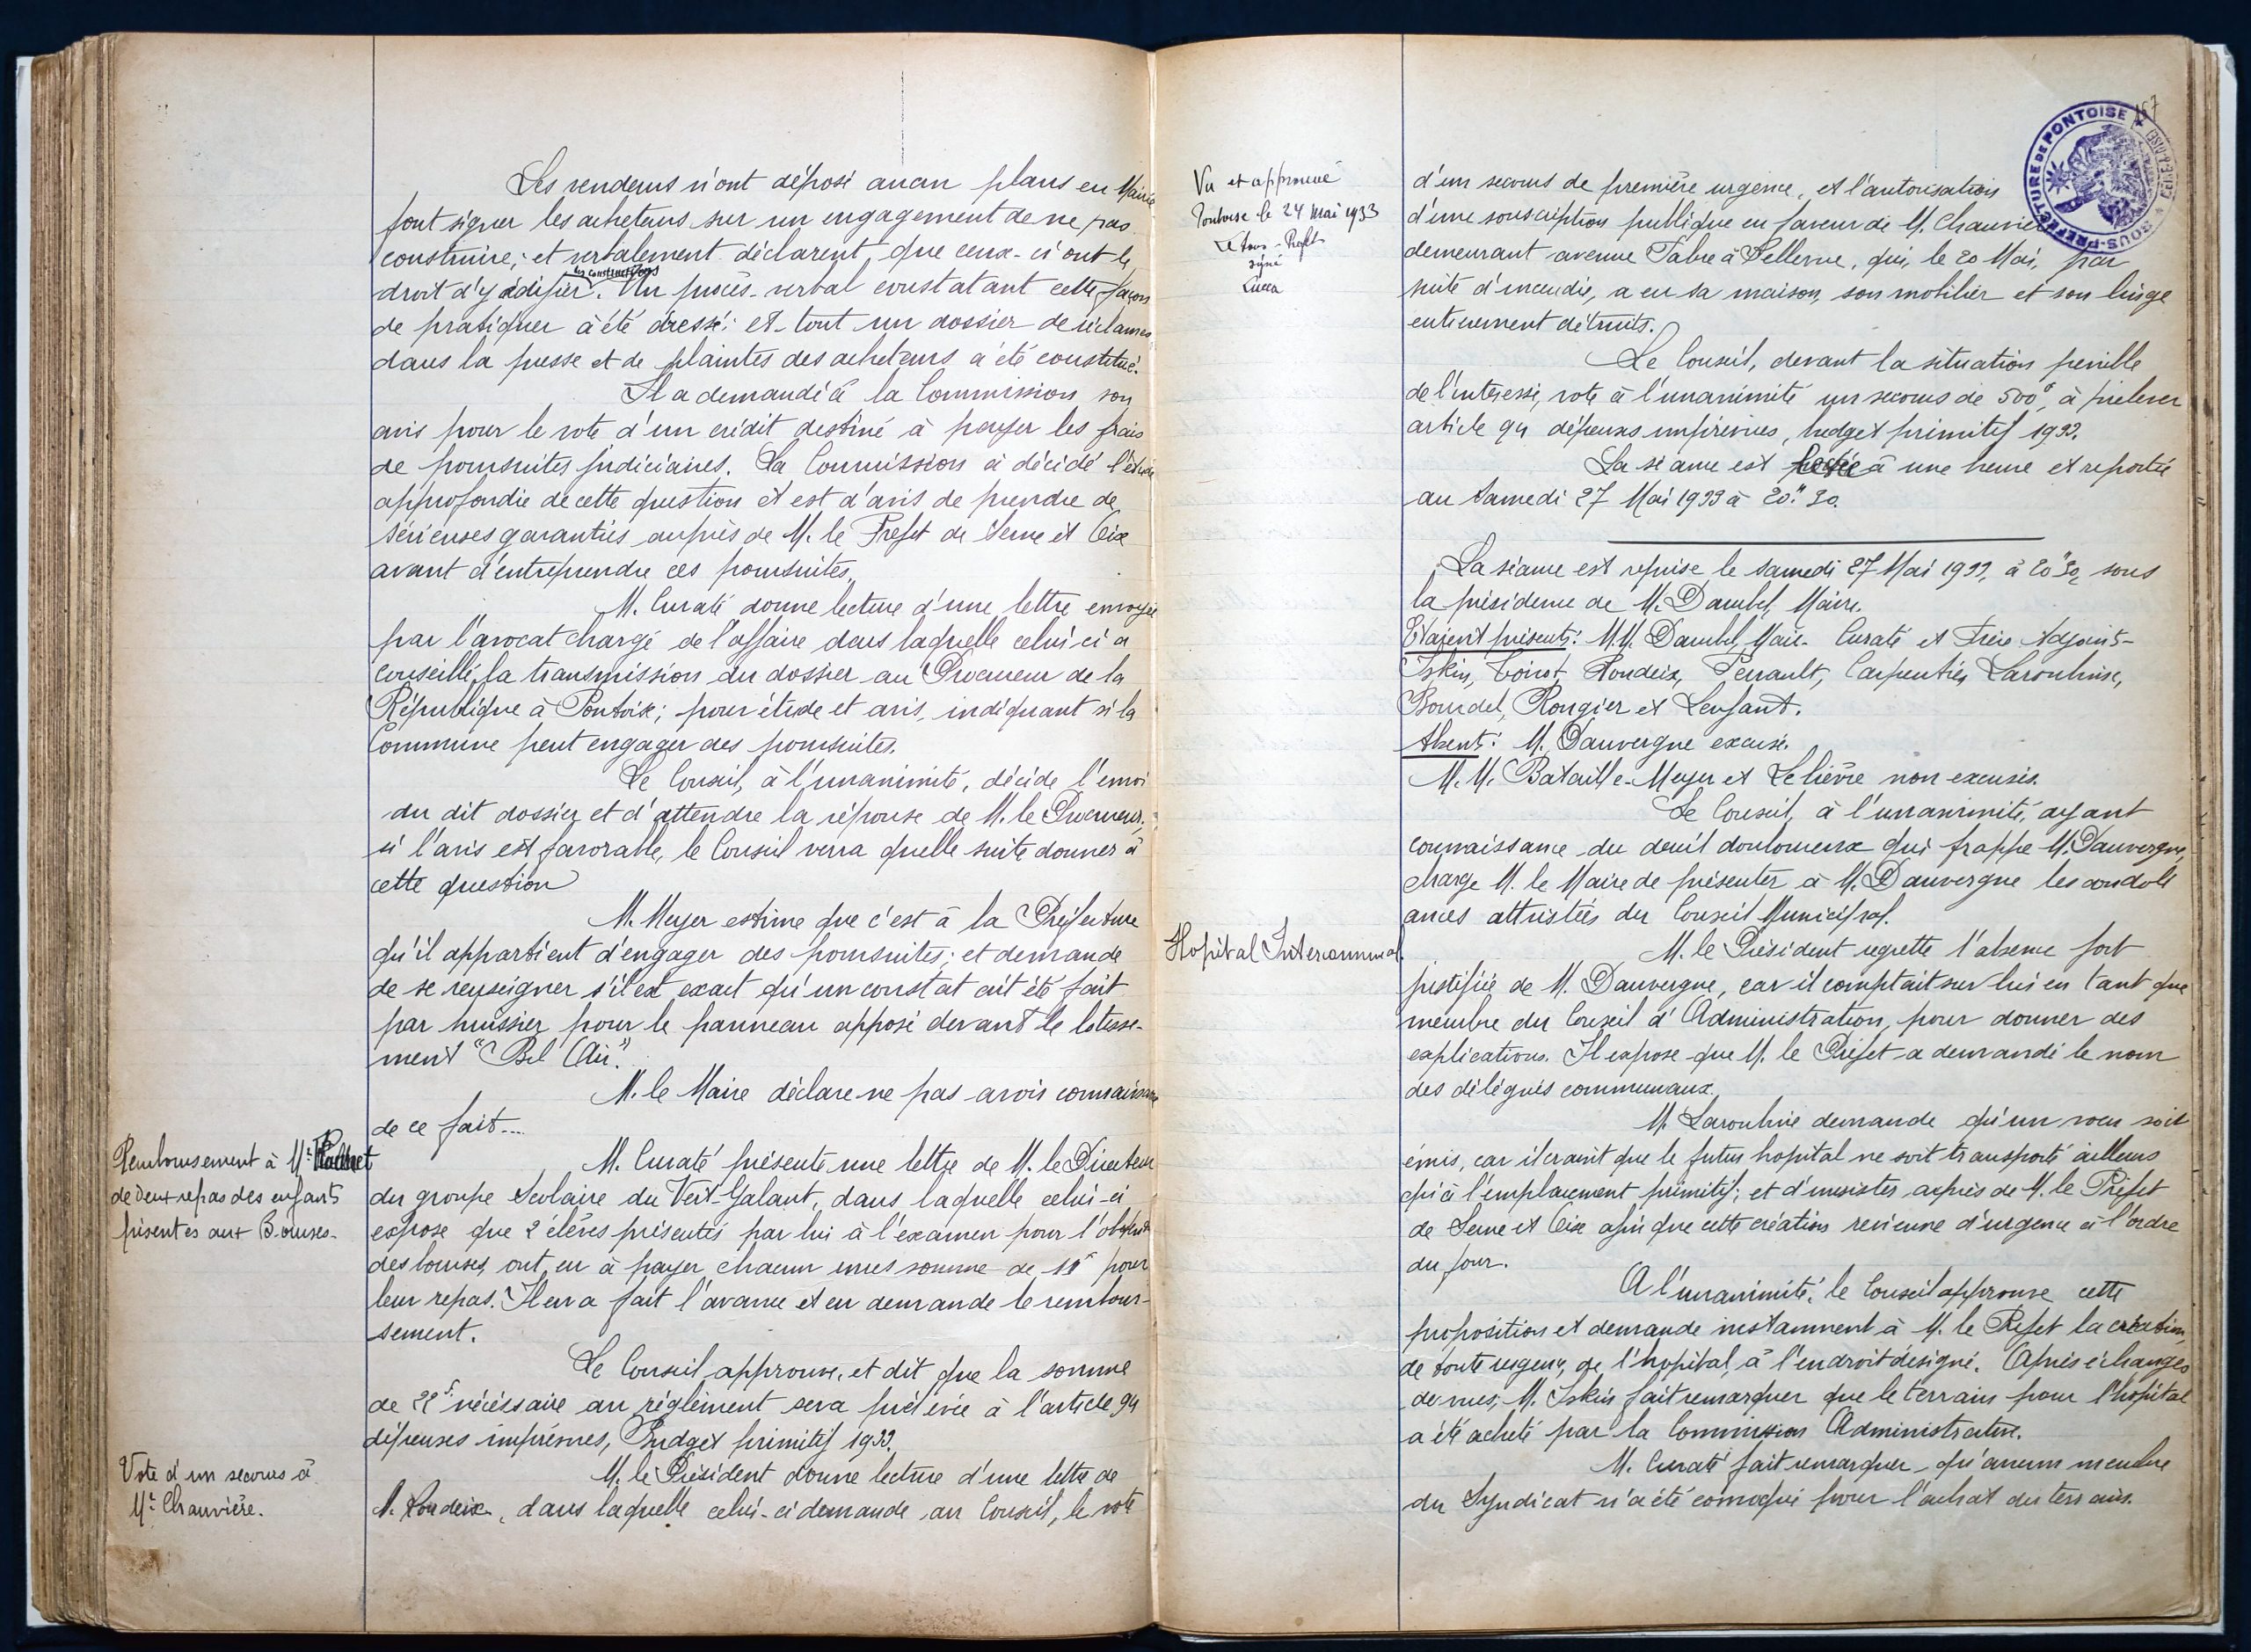 Les vendeurs n'ont déposé aucun plans en Mairie
font signer les acheteurs sur un engagement de ne pas
construire; et verbalement déclarent que ceux-ci ont le
droit d'y édifier des constructions. Un procès-verbal constatant cette façon
de pratiquer à été dressé; et tout un dossier de réclames
dans la presse et de plaintes des acheteurs a été constitué.
Il a demandé à la Commission son
avis pour le vote d'un crédit destiné à payer les frais
de poursuites judiciaires. La Commission a décidé l'étude
approfondie de cette question et est d'avis de prendre de
sérieuses garanties auprès de M. le Préfet de Seine et Oise
avant d'entreprendre ces poursuites.
M. Curaté donne lecture d'une lettre envoyée
par l'avocat chargé de l'affaire dans laquelle celui-ci a
conseillé la transmission du dossier au Procureur de la
République à Pontoise; pour étude et avis, indiquant si la
Commune peut engager des poursuites.
Le Conseil, à l'unanimité, décide l'envoi
du dit dossier et d'attendre la réponse de M. le Procureur;
si l'avis est favorable, le Conseil verra quelle suite donner à
cette question
M. Meyer estime que c'est à la Préfecture
qu'il appartient d'engager des poursuites; et demande
de se renseigner s'il est exact qu'un constat ait été fait
par huissier pour le panneau apposé devant le lotisse-
ment "Bel Air".
M. le Maire déclare ne pas avoir connaissance
de ce fait...
Remboursement à Mr
de deux repas des enfants
présentés aux Bourses.
M. Curaté présente une lettre de M. le Directeur
du groupe Scolaire du Vert-Galant, dans laquelle celui-ci
expose que 2 élèves présentés par lui à l'examen pour l'obtention
des bourses, ont eu à payer chacun une somme de 11f pour
leur repas. Il en a fait l'avance et en demande le rembour-
sement.
Le Conseil approuve, et dit que la somme
de 22f nécéssaire au réglèment sera prélévée à l'article 94
dépenses imprévues, Budget primitif 1933.
Vote d'un secours à
Mr Chauvière.
M. le Président donne lecture d'une lettre de
M. Londeix, dans laquelle celui-ci demande au Conseil, le vote
157
SOUS-PREFECTURE DE PONTOISE
Vu et approuvé
Pontoise le 24 Mai 1933
Le Sous-Préfet
signé
d'un secours de première urgence, et l'autorisation
d'une souscription publique en faveur de M. Chauvière
demeurant avenue Fabre à Bellevue, qui, le 20 Mai, par
suite d'incendie, a eu sa maison, son mobilier et son linge
entièrement détruits.
Le Conseil, devant la situation pénible
de l'intéressé, vote à l'unanimité un secours de 500f, à prélever
article 94 dépenses imprévues, budget primitif 1933.
La séance est levée à une heure et reportée
au Samedi 27 Mai 1933 à 20h30.
La séance est reprise le samedi 27 Mai 1933, à 20h30, sous
la présidence de M. Daubel, Maire.
Etaient présents: M.M. Daubel, Maire - Curaté et Frère Adjoints -
Iskin, Loirot, Londeix, Perrault, Carpentier, Larouhine,
Bourdel, Rougier et Lenfant.
Absents: M. Dauvergne excusé.
M.M. Bataille-Meyer et Lelièvre non excusés.
Le Conseil, à l'unanimité, ayant
connaissance du deuil douloureux qui frappe M. Dauvergne,
charge M. le Maire de présenter à M. Dauvergne les condolé
ances attristées du Conseil Municipal.
Hopital Intercommunal.
M. le Président regrette l'absence fort
justifiée de M. Dauvergne, car il comptait sur lui en tant que
membre du Conseil d'Administration, pour donner des
explications. Il expose que M. le Préfet a demandé le nom
des délégués communaux.
M. Larouhine demande qu'un voeu soit
émis, car il craint que le futur hopital ne soit transporté ailleurs
qu'à l'emplacement primitif; et d'insister auprès de M. le Préfet
de Seine et Oise afin que cette création revienne d'urgence à l'ordre
du jour.
A l'unanimité, le Conseil approuve cette
proposition et demande instamment à M. le Préfet la création,
de toute urgence, de l'hopital, à l'endroit désigné. Après échanges
de vues; M. Iskin fait remarquer que le terrain pour l'hopital
a été acheté par la Commission Administrative.
M. Curaté fait remarquer qu'aucun membre
du Syndicat n'a été convoqué pour l'achat du terrain.